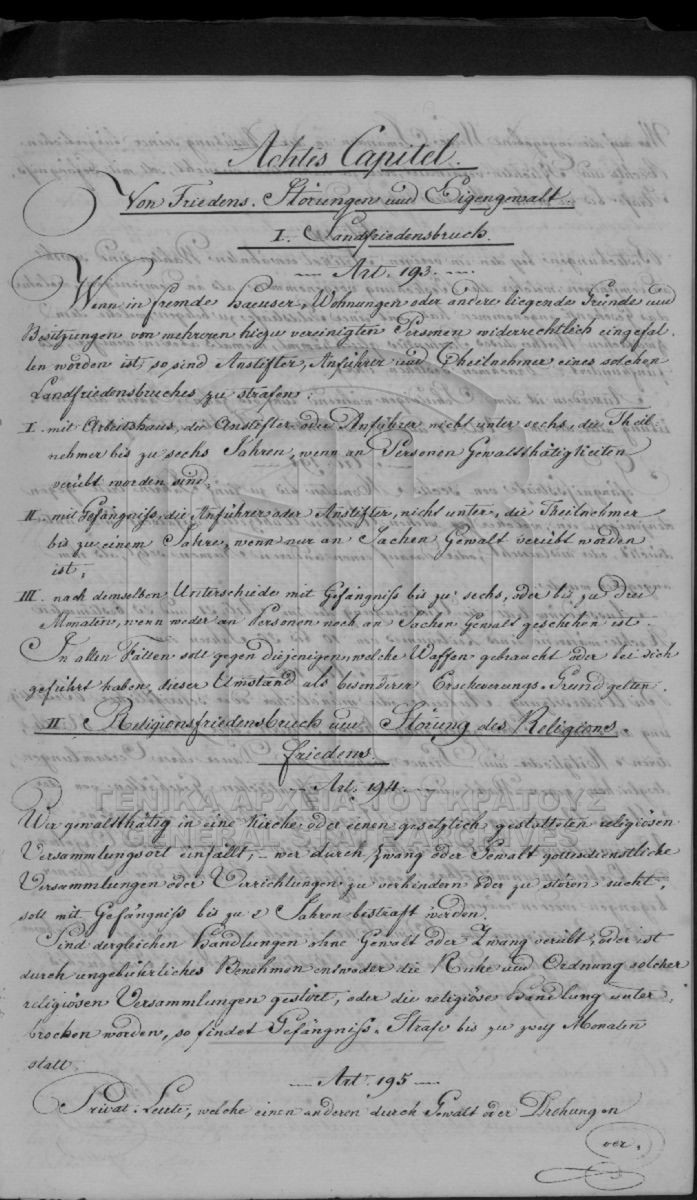 Achtes Capitel.
Von Friedens-Störungen und Eigengewalt.
I. Landfriedensbruch.
Art. 193.
Wenn in fremde Haeuser, Wohnungen oder andere liegende Gründe und
Besitzungen von mehreren hiezu vereinigten Personen widerrechtlich eingefal-
len worden ist, so sind Anstifter, Anführer und Theilnehmer eines solchen
Landfriedensbruches zu strafen:
I. mit Arbeitshaus, die Anstifter oder Anführer nicht unter sechs, die Theil-
nehmer bis zu sechs Jahren, wenn an Personen Gewaltthätigkeiten
verübt worden sind;
II. mit Gefängniss, die Anführer oder Anstifter, nicht unter, die Theilnehmer
bis zu einem Jahre, wenn nur an Sachen Gewalt verübt worden
ist;
III. nach demselben Unterschiede mit Gefängniss bis zu sechs, oder bis zu drei
Monaten, wenn weder an Personen noch an Sachen Gewalt geschehen ist.
In allen Fällen soll gegen diejenigen, welche Waffen gebraucht oder bei sich
geführt haben, dieser Umstand als besonderer Erschwerungs-Grund gelten.
II. Religionsfriedensbruch und Störung des Religions-
friedens.
Art. 194.
ΓΕΝΙΚΑ ΑΡΧΕΙΑ ΤΟΥ ΚΡΑΤΟΥΣ
Wer gewaltthätig in eine Kirche oder einen gesetzlich gestatteten religiösen
GENERAL STATE ARCHIVES
Versammlungsort einfällt, – wer durch Zwang oder Gewalt gottesdienstliche
Versammlungen oder Verrichtungen zu verhindern oder zu stören sucht,
soll mit Gefängniss bis zu 2 Jahren bestraft werden.
Sind dergleichen Handlungen ohne Gewalt oder Zwang verübt, oder ist
durch ungebührliches Benehmen entweder die Ruhe und Ordnung solcher
religiösen Versammlungen gestört, oder die religiöse Handlung unter-
brochen worden, so findet Gefängniss-Strafe bis zu zwey Monaten
statt.
Art. 195
Privat-Leute, welche einen anderen durch Gewalt oder Drohungen
ver-